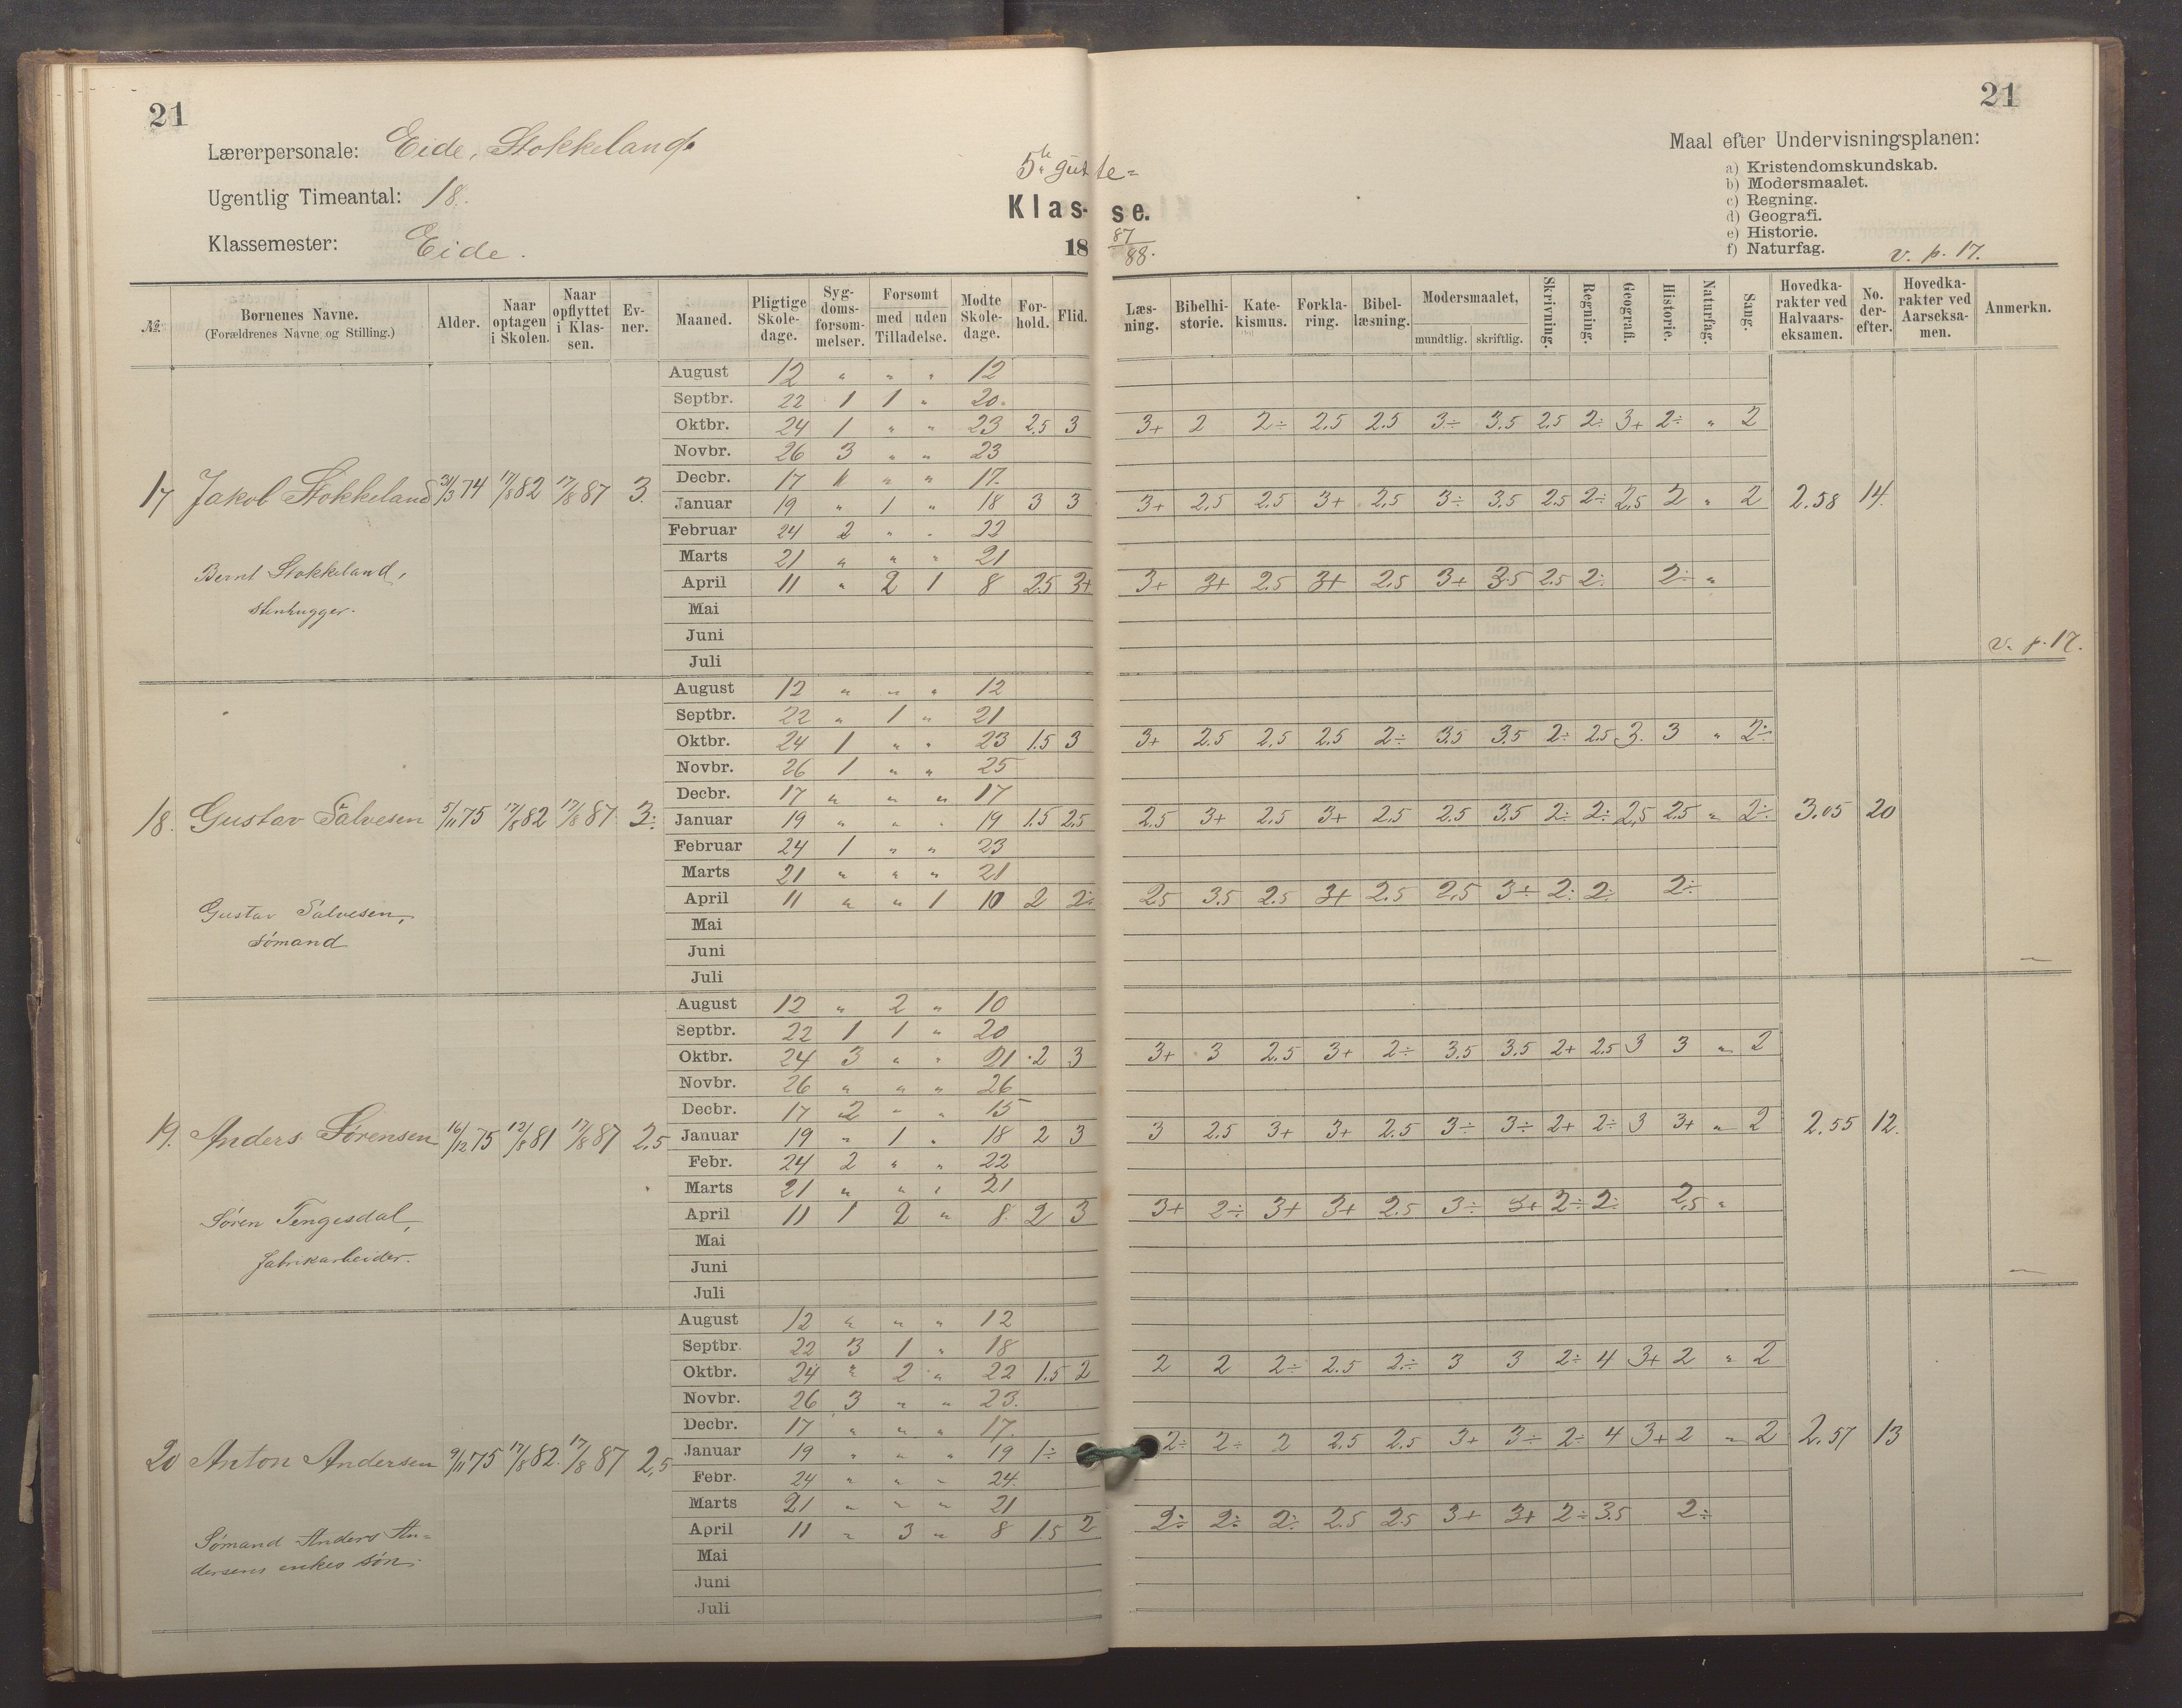 21
21
Lærerpersonale: Eide, Stokkeland.
Ugentlig Timeantal: 18.
Klassemester: Eide.
5te gutte-
Klas-se.
18 87/88.
Maal efter Undervisningsplanen:
a) Kristendomskundskab.
b) Modersmaalet.
c) Regning.
d) Geografi.
e) Historie.
f) Naturfag. v. p. 17.
№ Børnenes Navne. (Forældrenes Navne og Stilling.) Alder. Naar optagen i Skolen. Naar opflyttet i Klassen. Evner. Maaned. Pligtige Skoledage. Sygdomsforsømmelser. Forsømt med uden Tilladelse. Mødte Skoledage. Forhold. Flid. Læsning. Bibelhistorie. Katekismus. Forklaring. Bibellæsning. Modersmaalet, mundtlig. skriftlig. Skrivning. Regning. Geografi. Historie. Naturfag. Sang. Hovedkarakter ved Halvaarseksamen. No. derefter. Hovedkarakter ved Aarseksamen. Anmerkn.
August 12 " " " 12
Septbr. 22 1 1 " 20.
Oktbr. 24 1 " " 23 2.5 3 3+ 2 2÷ 2.5 2.5 3÷ 3.5 2.5 2÷ 3+ 2÷ " 2
Novbr. 26 3 " " 23
Decbr. 17 " " " 17.
17 Jakob Stokkeland 31/3 74 17/8 82 17/8 87 3.
Januar 19 " 1 " 18 3 3 3+ 2.5 2.5 3+ 2.5 3÷ 3.5 2.5 2÷ 2.5 2 " 2 2.58 14.
Februar 24 2 " " 22
Marts 21 " " " 21
Bernt Stokkeland,
April 11 " 2 1 8 2.5 3+ 3+ 3+ 2.5 3+ 2.5 3+ 3.5 2.5 2÷ 2÷ "
stenhugger.
Mai
Juni
v. p. 17.
Juli
August 12 " " " 12
Septbr. 22 " 1 " 21
Oktbr. 24 1 " " 23 1.5 3 3+ 2.5 2.5 2.5 2÷ 3.5 3.5 2÷ 2.5 3. 3 " 2÷
Novbr. 26 1 " " 25
Decbr. 17 " " " 17
18. Gustav Salvesen 5/11 75 17/8 82 17/8 87 3÷
Januar 19 " " " 19 1.5 2.5 2.5 3+ 2.5 3+ 2.5 2.5 3.5 2÷ 2÷ 2.5 2.5 " 2÷ 3.05 20
Februar 24 1 " " 23
Marts 21 " " " 21
April 11 " " 1 10 2 2÷ 2.5 3.5 2.5 3+ 2.5 2.5 3+ 2÷ 2÷ 2÷
Gustav Salvesen,
sømand
Mai
Juni
Juli
August 12 " 2 " 10
Septbr. 22 1 1 " 20
Oktbr. 24 3 " " 21 2 3 3+ 3 2.5 3+ 2÷ 3.5 3.5 2+ 2.5 3 3 " 2
Novbr. 26 " " " 26
Decbr. 17 2 " " 15
19. Anders Sørensen 16/12 75 12/8 81 17/8 87 2.5
Januar 19 " 1 " 18 2 3 3 2.5 3+ 3+ 2.5 3÷ 3÷ 2+ 2÷ 3 3+ " 2 2.55 12.
Febr. 24 2 " " 22
Marts 21 " " " 21
Søren Tengesdal,
April 11 1 2 " 8. 2 3 3+ 2÷ 3+ 3+ 2.5 3÷ 3+ 2÷ 2÷ 2.5 "
fabrikarbeider.
Mai
Juni
Juli
August 12 " " " 12
Septbr. 22 3 1 " 18
Oktbr. 24 " 2 " 22 1.5 2 2 2 2÷ 2.5 2÷ 3 3 2÷ 4 3+ 2 " 2
Novbr. 26 3 " " 23.
Decbr. 17 " " " 17.
20 Anton Andersen 9/11 75 17/8 82. 17/8 87 2.5
Januar 19 " " " 19 1÷ 2÷ 2÷ 2 2.5 2.5 3+ 3÷ 2÷ 4 3+ 2 " 2 2.57 13
Febr. 24 " " " 24.
Marts 21 " " " 21
April 11 " 3 " 8 1.5 2 2÷ 2÷ 2÷ 2.5 2.5 3+ 3+ 2÷ 3.5 2÷
Sømand Anders An-
dersens enkes søn.
Mai
Juni
Juli